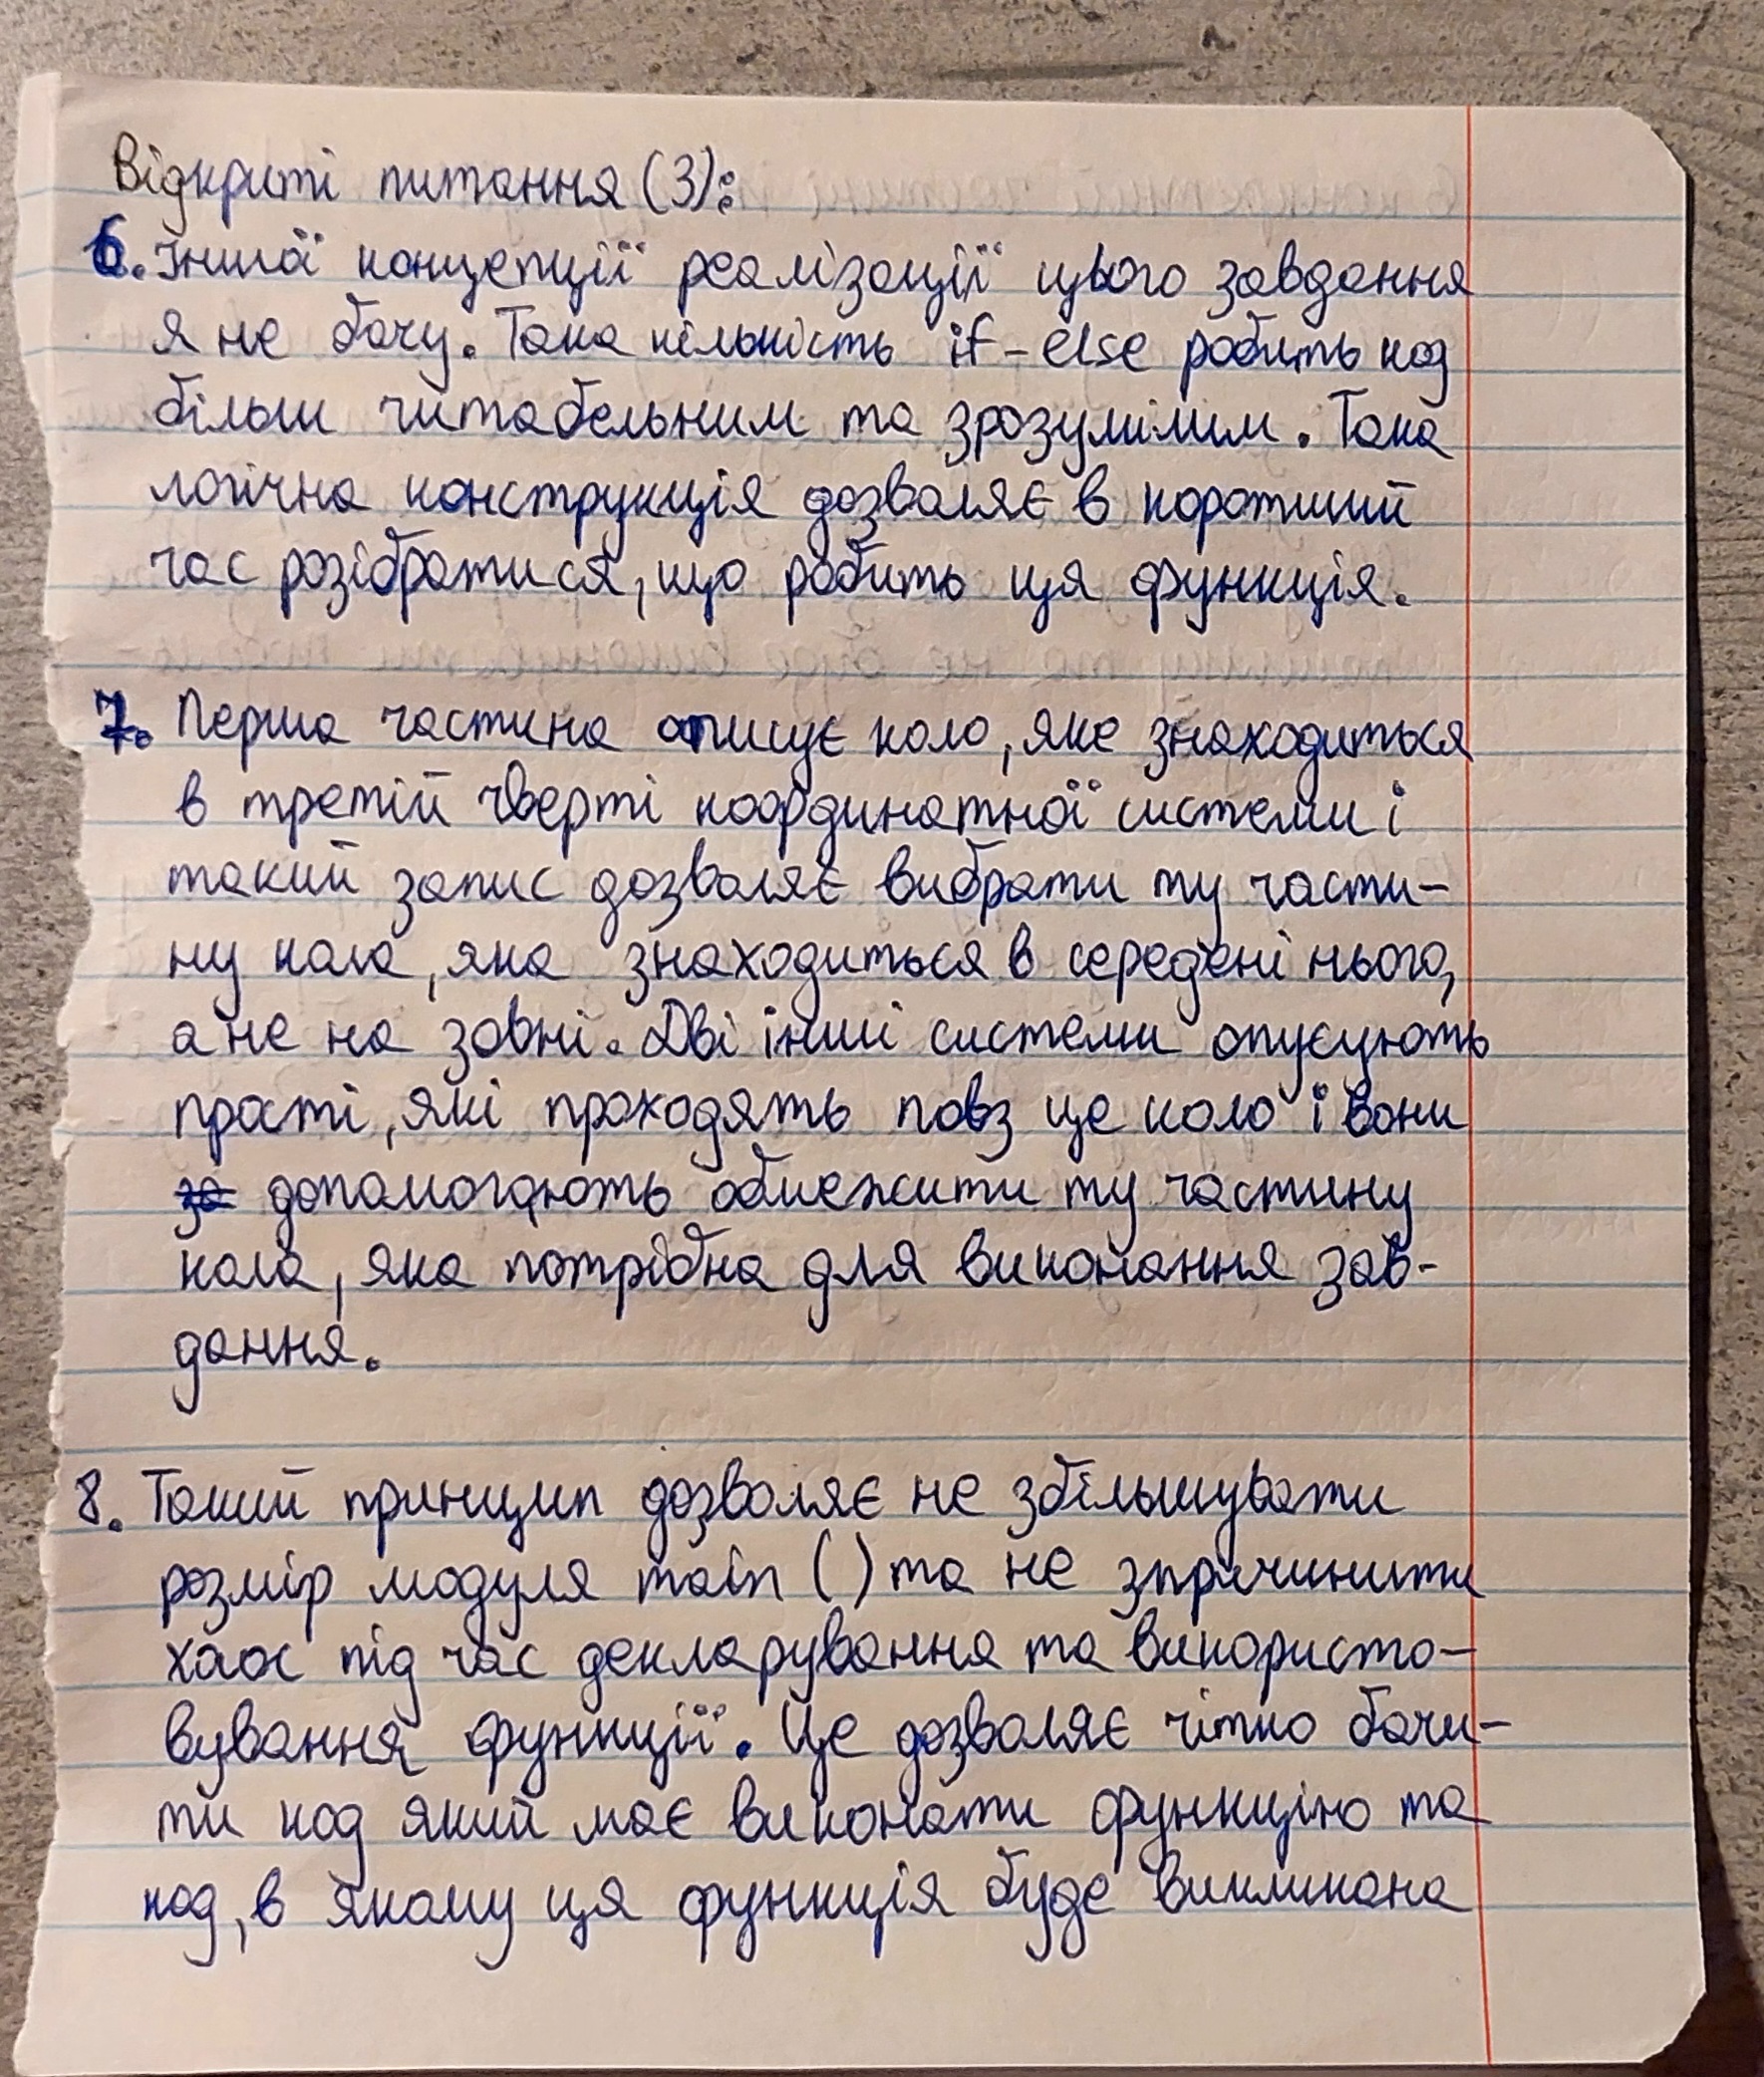 Відкриті питання (3):
6. Іншої концепції реалізації цього завдання
я не бачу. Така кількість if-else робить код
більш читабельним та зрозумілим. Така
логічна конструкція дозволяє в коротший
час розібратися, що робить ця функція.
7. Перша частина описує коло, яке знаходиться
в третій чверті координатної системи і
такий запис дозволяє вибрати ту части-
ну кола, яка знаходиться в середені нього,
а не на зовні. Дві інші системи опусують
прості, які проходять повз це коло і вони
за допомогають обмежити ту частину
кола, яка потрібна для виконання зав-
дання.
8. Такий принцип дозволяє не збільшувати
розмір модуля main () та не зпричинити
хаос під час декларування та використо-
вування функції. Це дозволяє чітко бачи-
ти код який має виконати функцію та
код, в якому ця функція буде викликана